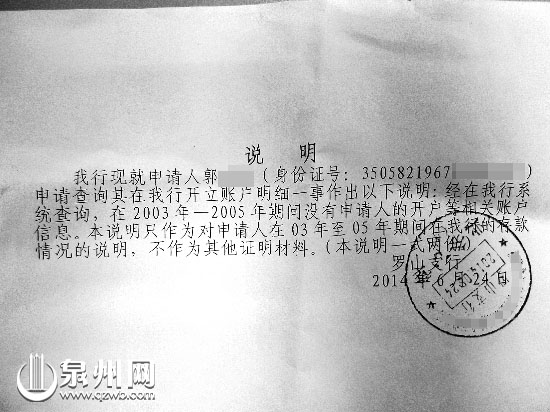 说 明
我行现就申请人郭 （身份证号：3505821967 ）
申请查询其在我行开立账户明细一事作出以下说明：经在我行系
统查询，在2003年—2005年期间没有申请人的开户等相关账户
信息。本说明只作为对申请人在03年至05年期间在我行的存款
情况的说明，不作为其他证明材料。（本说明一式两份）
罗山支行
2014年6月24日
泉州网
www.qzwb.com